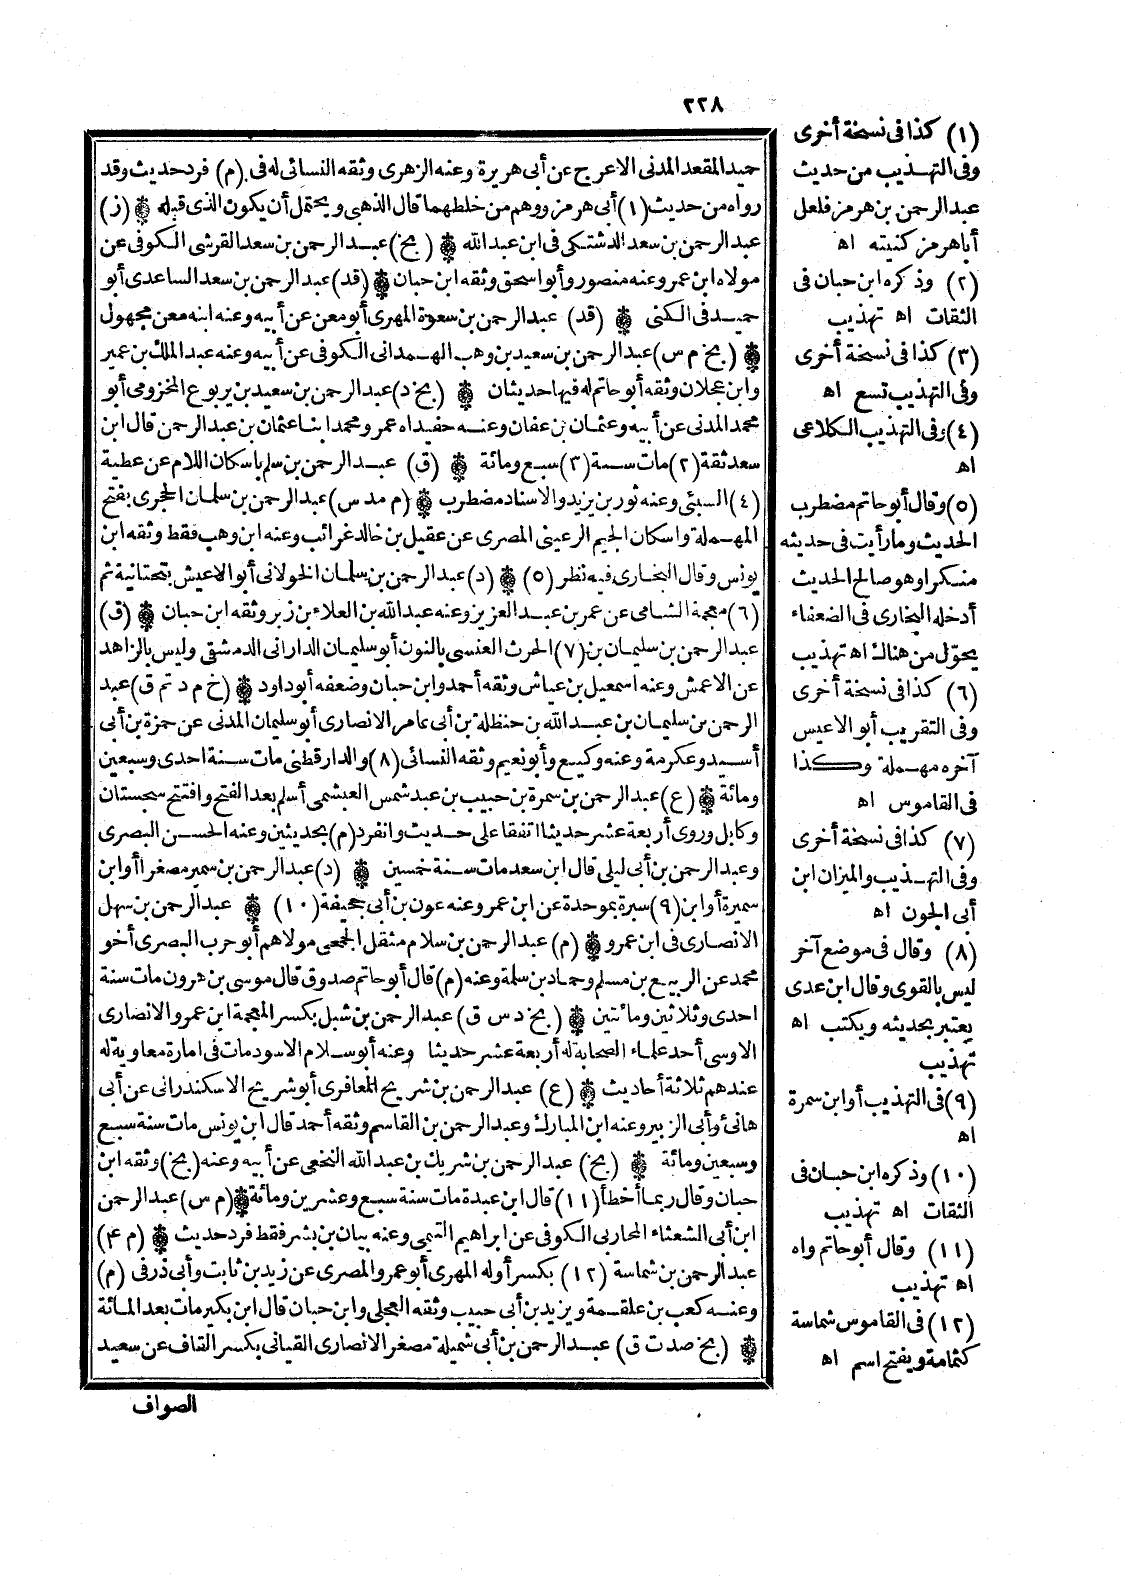 ٢٢٨
حميد المقعد المدنى الاعرج عن أبى هريرة وعنه الزهرى وثقه النسائى له فى (م) فرد حديث وقد
رواه من حديث (١) أبى هرمز ووهم من خلطهما قال الذهبى ويحتمل أن يكون الذى قبله (ز)
عبد الرحمن بن سعد الدشتكى فى ابن عبد الله (بخ) عبد الرحمن بن سعد القرشى الكوفى عن
مولاه ابن عمر وعنه منصور وأبو اسحق وثقه ابن حبان (قد) عبد الرحمن بن سعد الساعدى أبو
حميد فى الكنى (قد) عبد الرحمن بن سعوة المهرى أبو معن عن أبيه وعنه ابنه معن مجهول
(بخ م س) عبد الرحمن بن سعيد بن وهب الهمدانى الكوفى عن أبيه وعنه عبد الملك بن عمير
وابن عجلان وثقه أبو حاتم له فيها حديثان (بخ د) عبد الرحمن بن سعيد بن يربوع المخزومى أبو
محمد المدنى عن أبيه وعثمان بن عفان وعنه حفيداه عمر ومحمد ابنا عثمان بن عبد الرحمن قال ابن
سعد ثقة (٢) مات سنة (٣) سبع ومائة (ق) عبد الرحمن بن سلم باسكان اللام عن عطية
(٤) السبئى وعنه ثور بن يزيد والاسناد مضطرب (م مد س) عبد الرحمن بن سلمان الحجرى بفتح
المهملة واسكان الجيم الرعينى المصرى عن عقيل بن خالد غرائب وعنه ابن وهب فقط وثقه ابن
يونس وقال البخارى فيه نظر (٥) (د) عبد الرحمن بن سلمان الخولانى أبو الاعيش بتحتانية ثم
(٦) معجمة الشامى عن عمر بن عبد العزيز وعنه عبد الله بن العلاء بن زبر وثقه ابن حبان (ق)
عبد الرحمن بن سليمان بن (٧) الحرث العنسى بالنون أبو سليمان الدارانى الدمشقى وليس بالزاهد
عن الاعمش وعنه اسمعيل بن عياش وثقه أحمد وابن حبان وضعفه أبو داود (خ م د تم ق) عبد
الرحمن بن سليمان بن عبد الله بن حنظلة بن أبى عامر الانصارى أبو سليمان المدنى عن حمزة بن أبى
أسيد وعكرمة وعنه وكيع وأبو نعيم وثقه النسائى (٨) والدار قطنى مات سنة احدى وسبعين
ومائة (ع) عبد الرحمن بن سمرة بن حبيب بن عبد شمس العبشمى أسلم بعد الفتح وافتتح سجستان
وكابل وروى أربعة عشر حديثا اتفقا على حديث وانفرد (م) بحديثين وعنه الحسن البصرى
وعبد الرحمن بن أبى ليلى قال ابن سعد مات سنة خمسين (د) عبد الرحمن بن سمير مصغرا أو ابن
سميرة أو ابن (٩) سبرة بموحدة عن ابن عمر وعنه عون بن أبى جحيفة (١٠) عبد الرحمن بن سهل
الانصارى فى ابن عمرو (م) عبد الرحمن بن سلام مثقل الجمعى مولاهم أبو حرب البصرى أخو
محمد عن الربيع بن مسلم وحماد بن سلمة وعنه (م) قال أبو حاتم صدوق قال موسى بن هرون مات سنة
احدى وثلاثين ومائتين (بخ د س ق) عبد الرحمن بن شبل بكسر المعجمة ابن عمرو الانصارى
الاوسى أحد علماء الصحابة له أربعة عشر حديثا وعنه أبو سلام الاسود مات فى امارة معاوية له
عندهم ثلاثة أحاديث (ع) عبد الرحمن بن شريح المعافرى أبو شريح الاسكندرانى عن أبى
هانئ وأبى الزبير وعنه ابن المبارك وعبد الرحمن بن القاسم وثقه أحمد قال ابن يونس مات سنة سبع
وسبعين ومائة (بخ) عبد الرحمن بن شريك بن عبد الله النخعى عن أبيه وعنه (بخ) وثقه ابن
حبان وقال ربما أخطأ (١١) قال ابن عبدة مات سنة سبع وعشرين ومائة (م س) عبد الرحمن
ابن أبى الشعثاء المحاربى الكوفى عن ابراهيم التيمى وعنه بيان بن بشر فقط فرد حديث (م ٤)
عبد الرحمن بن شماسة (١٢) بكسر أوله المهرى أبو عمرو المصرى عن زيد بن ثابت وأبى ذر فى (م)
وعنه كعب بن علقمة ويزيد بن أبى حبيب وثقه العجلى وابن حبان قال ابن بكير مات بعد المائة
(بخ صد ت ق) عبد الرحمن بن أبى شميلة مصغر الانصارى القبائى بكسر القاف عن سعيد
الصواف
(١) كذا فى نسخة أخرى
وفى التهذيب من حديث
عبد الرحمن بن هرمز فلعل
أبا هرمز كنيته اه
(٢) وذكره ابن حبان فى
الثقات اه تهذيب
(٣) كذا فى نسخة أخرى
وفى التهذيب تسع اه
(٤) وفى التهذيب الكلاعى
اه
(٥) وقال أبو حاتم مضطرب
الحديث وما رأيت فى حديثه
منكرا وهو صالح الحديث
أدخله البخارى فى الضعفاء
يحوّل من هناك اه تهذيب
(٦) كذا فى نسخة أخرى
وفى التقريب أبو الاعيس
آخره مهملة وكذا
فى القاموس اه
(٧) كذا فى نسخة أخرى
وفى التهذيب والميزان ابن
أبى الجون اه
(٨) وقال فى موضع آخر
ليس بالقوى وقال ابن عدى
يعتبر بحديثه ويكتب اه
تهذيب
(٩) فى التهذيب أو ابن سمرة
اه
(١٠) وذكره ابن حبان فى
الثقات اه تهذيب
(١١) وقال أبو حاتم واه
اه تهذيب
(١٢) فى القاموس شماسة
كثمامة ويفتح اسم اه